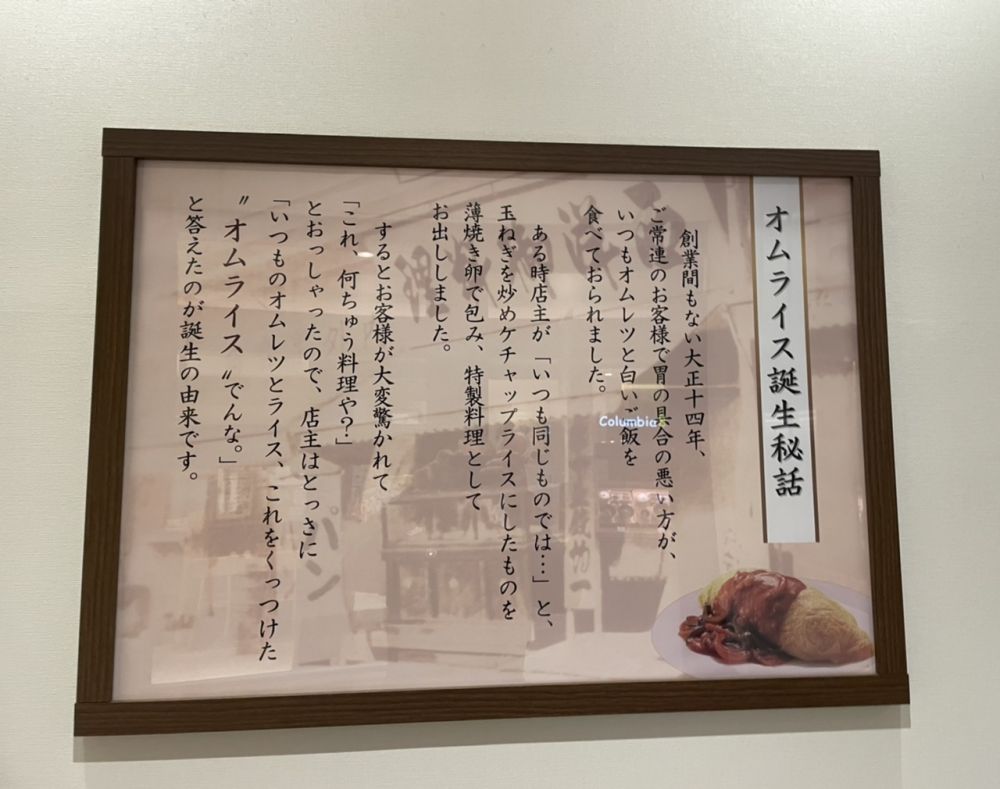 オムライス誕生秘話
創業間もない大正十四年、
ご常連のお客様で胃の具合の悪い方が、
いつもオムレツと白いご飯を
食べておられました。
ある時店主が「いつも同じものでは…」と、
玉ねぎを炒めケチャップライスにしたものを
薄焼き卵で包み、特製料理として
お出ししました。
するとお客様が大変驚かれて
「これ、何ちゅう料理や?」
とおっしゃったので、店主はとっさに
「いつものオムレツとライス、これをくっつけた
〝オムライス〟でんな。」
と答えたのが誕生の由来です。
Columbia
パン